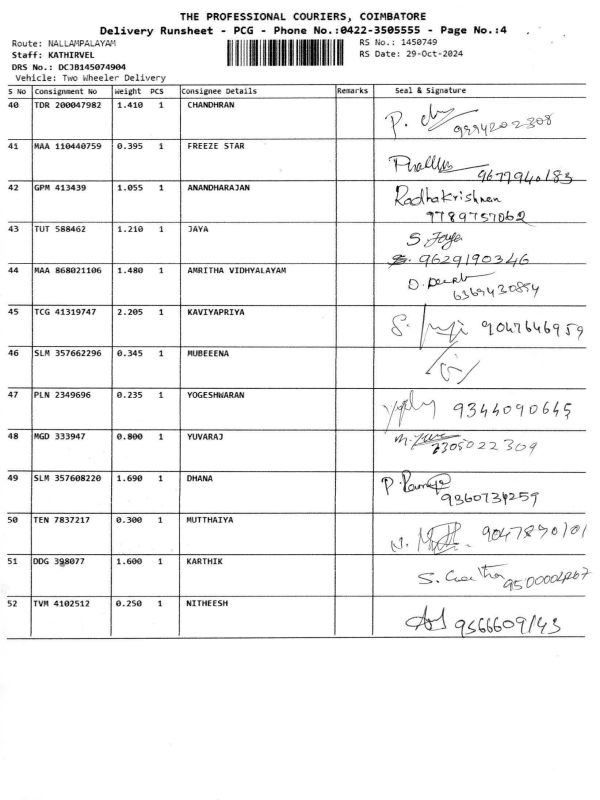 THE PROFESSIONAL COURIERS, COIMBATORE
Delivery Runsheet - PCG - Phone No.:0422-3505555 - Page No.:4
Route: NALLAMPALAYAM RS No.: 1450749
Staff: KATHIRVEL RS Date: 29-Oct-2024
DRS No.: DCJB145074904
Vehicle: Two Wheeler Delivery
S No Consignment No Weight PCS Consignee Details Remarks Seal & Signature
40 TDR 200047982 1.410 1 CHANDHRAN P.
9994202308
41 MAA 110440759 0.395 1 FREEZE STAR
9677940183
42 GPM 413439 1.055 1 ANANDHARAJAN Radhakrishnan
9789757062
43 TUT 588462 1.210 1 JAYA S. Jaya
9629190346
44 MAA 868021106 1.480 1 AMRITHA VIDHYALAYAM D.
6369430854
45 TCG 41319747 2.205 1 KAVIYAPRIYA S. 9047646959
46 SLM 357662296 0.345 1 MUBEEENA
47 PLN 2349696 0.235 1 YOGESHWARAN 9344090645
48 MGD 333947 0.800 1 YUVARAJ M.
7305022309
49 SLM 357608220 1.690 1 DHANA P.
9360734259
50 TEN 7837217 0.300 1 MUTTHAIYA 9047890101
51 DDG 398077 1.600 1 KARTHIK S.
52 TVM 4102512 0.250 1 NITHEESH 9566609143